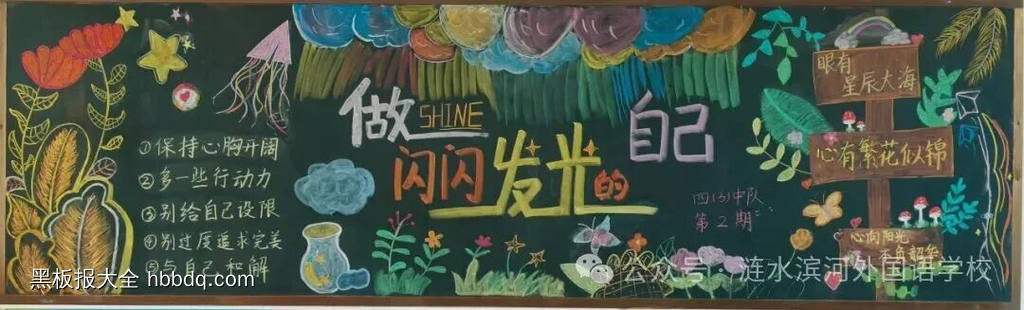 ①保持心胸开阔
②多一些行动力
③别给自己设限
④别过度追求完美
⑤与自己和解
做SHINE
闪闪发光的
自己
四(3)中队
第2期
眼有
星辰大海
心有繁花似锦
心向阳光
韶华
黑板报大全 hbbdq.com
公众号·涟水滨河外国语学校